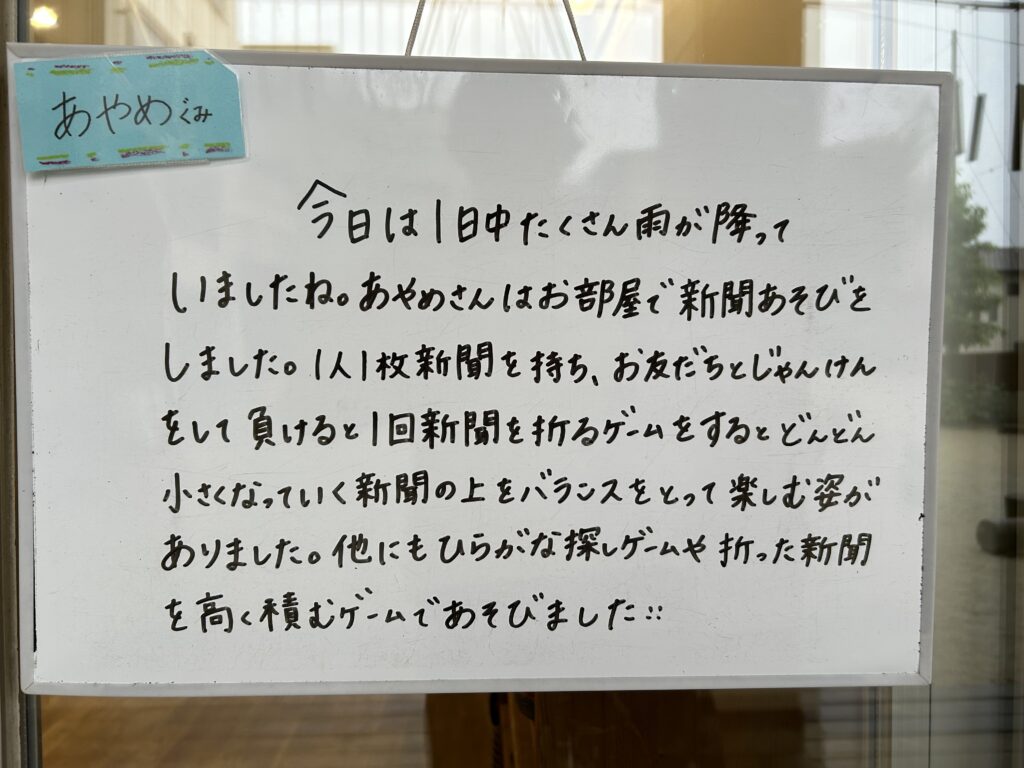 あやめぐみ
今日は1日中たくさん雨が降って
いましたね。あやめさんはお部屋で新聞あそびを
しました。1人1枚新聞を持ち、お友だちとじゃんけん
をして負けると1回新聞を折るゲームをするとどんどん
小さくなっていく新聞の上をバランスをとって楽しむ姿が
ありました。他にもひらがな探しゲームや折った新聞
を高く積むゲームであそびました::